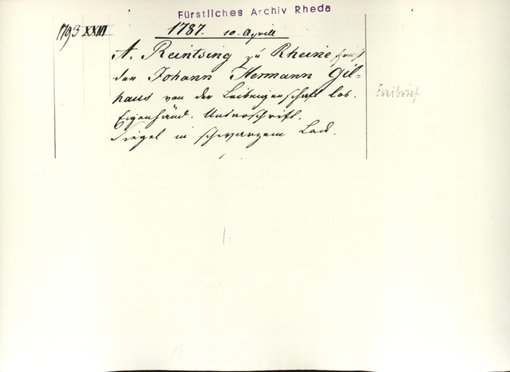 Fürstliches Archiv Rheda
1793 XXIII 1787. 10. Aprill
A. Reintsing zu Rheine
den Johann Hermann Gil-
haus von der Leibeigenschaft los.
Eigenhänd. Unterschrift.
Siegel in schwarzem Lack.
Freibrief